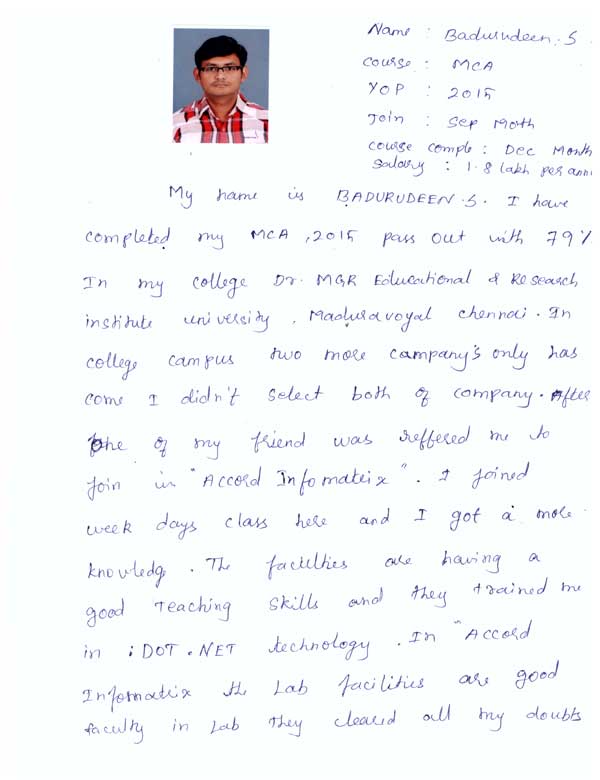 Name : Badurudeen.S.
Course : MCA
YOP : 2015
Join : Sep Moth
course comple : Dec Month
Salary : 1.8 lakh per ann
My name is BADURUDEEN.S. I have
completed my MCA ,2015 pass out with 79%
In my college Dr. MGR Educational & Research
institute university , Maduravoyal chennai. In
college campus two more company's only has
come I didn't select both of company. After
one of my friend was reffered me to
join in "Accord Infomateix". I joined
week days class here and I got a more
knowledge. The facilities are having a
good Teaching skills and they trained me
in : DOT.NET technology. In "Accord
Informatix the Lab facilities are good
faculty in Lab they cleared all my doubts